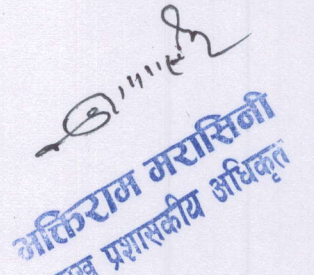 भक्तिराम मरासिनी
प्रशासकीय अधिकृत